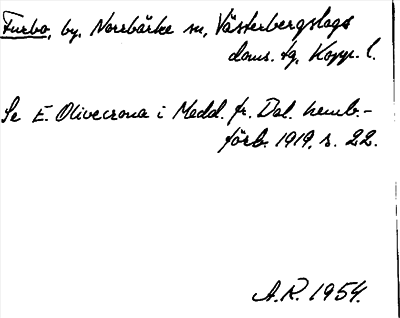 Furbo, by, Norrbärke sn, Västerbergslags
doms. tg, Kopp. l.
Se E. Olivecrona i Medd. fr. Dal. hemb.-
förb. 1919, s. 22.
A.R. 1954.